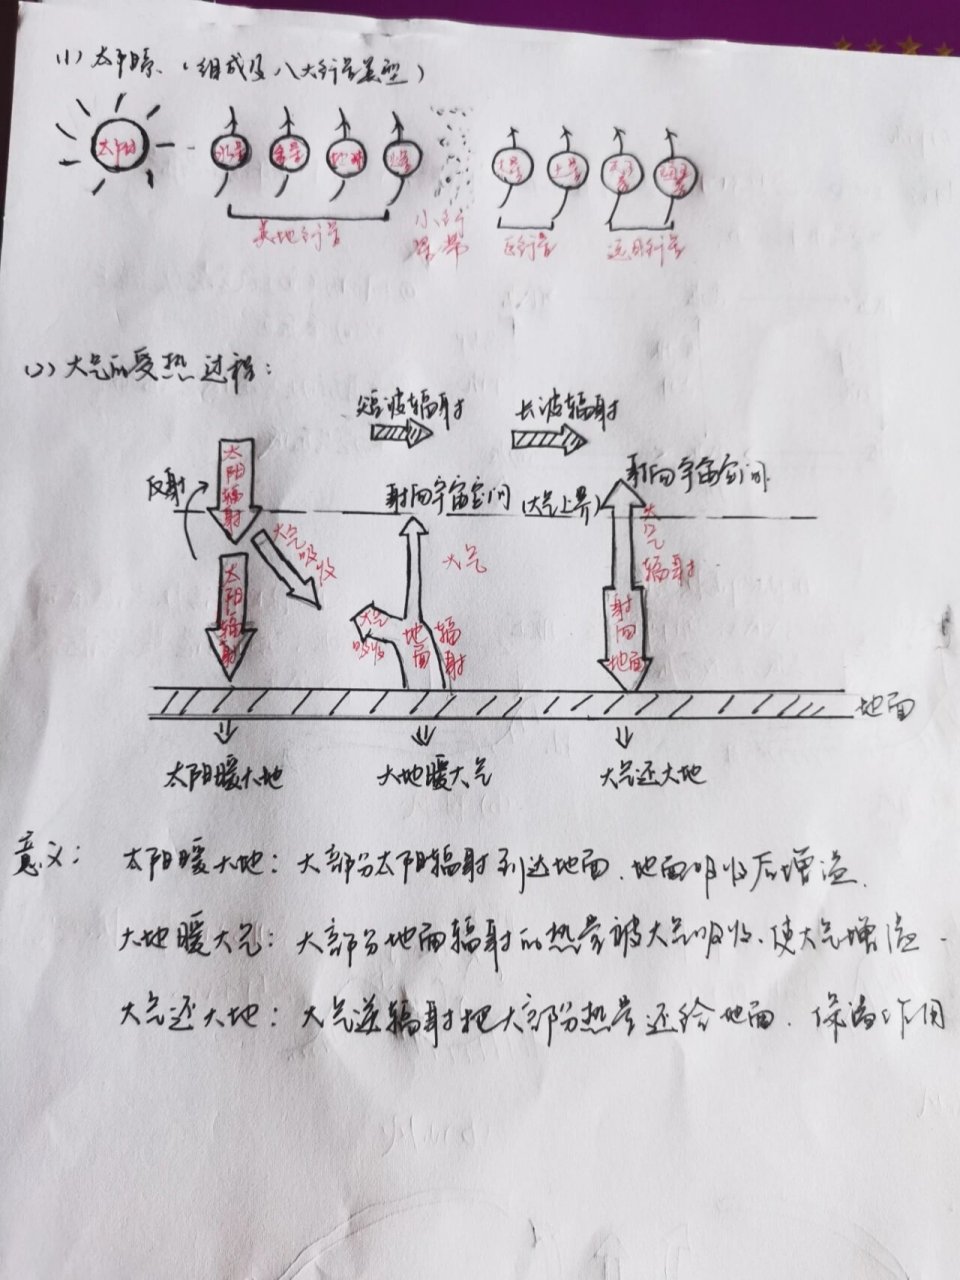 (1) 太阳系.（组成及八大行星类型）
太阳 水星 金星 地球 火星 土星
类地行星 小行星带 巨行星 远日行星
(2) 大气的受热过程：
短波辐射 长波辐射
反射 太阳辐射 射向宇宙空间 (大气上界) 射向宇宙空间
大气吸收 大气 大气辐射
太阳辐射 大气吸收 地面辐射 射向地面
地面
太阳暖大地 大地暖大气 大气还大地
意义：太阳暖大地：大部分太阳辐射到达地面.地面吸收后增温.
大地暖大气：大部分地面辐射的热量被大气吸收.使大气增温.
大气还大地：大气逆辐射把大部分热量还给地面.保温作用